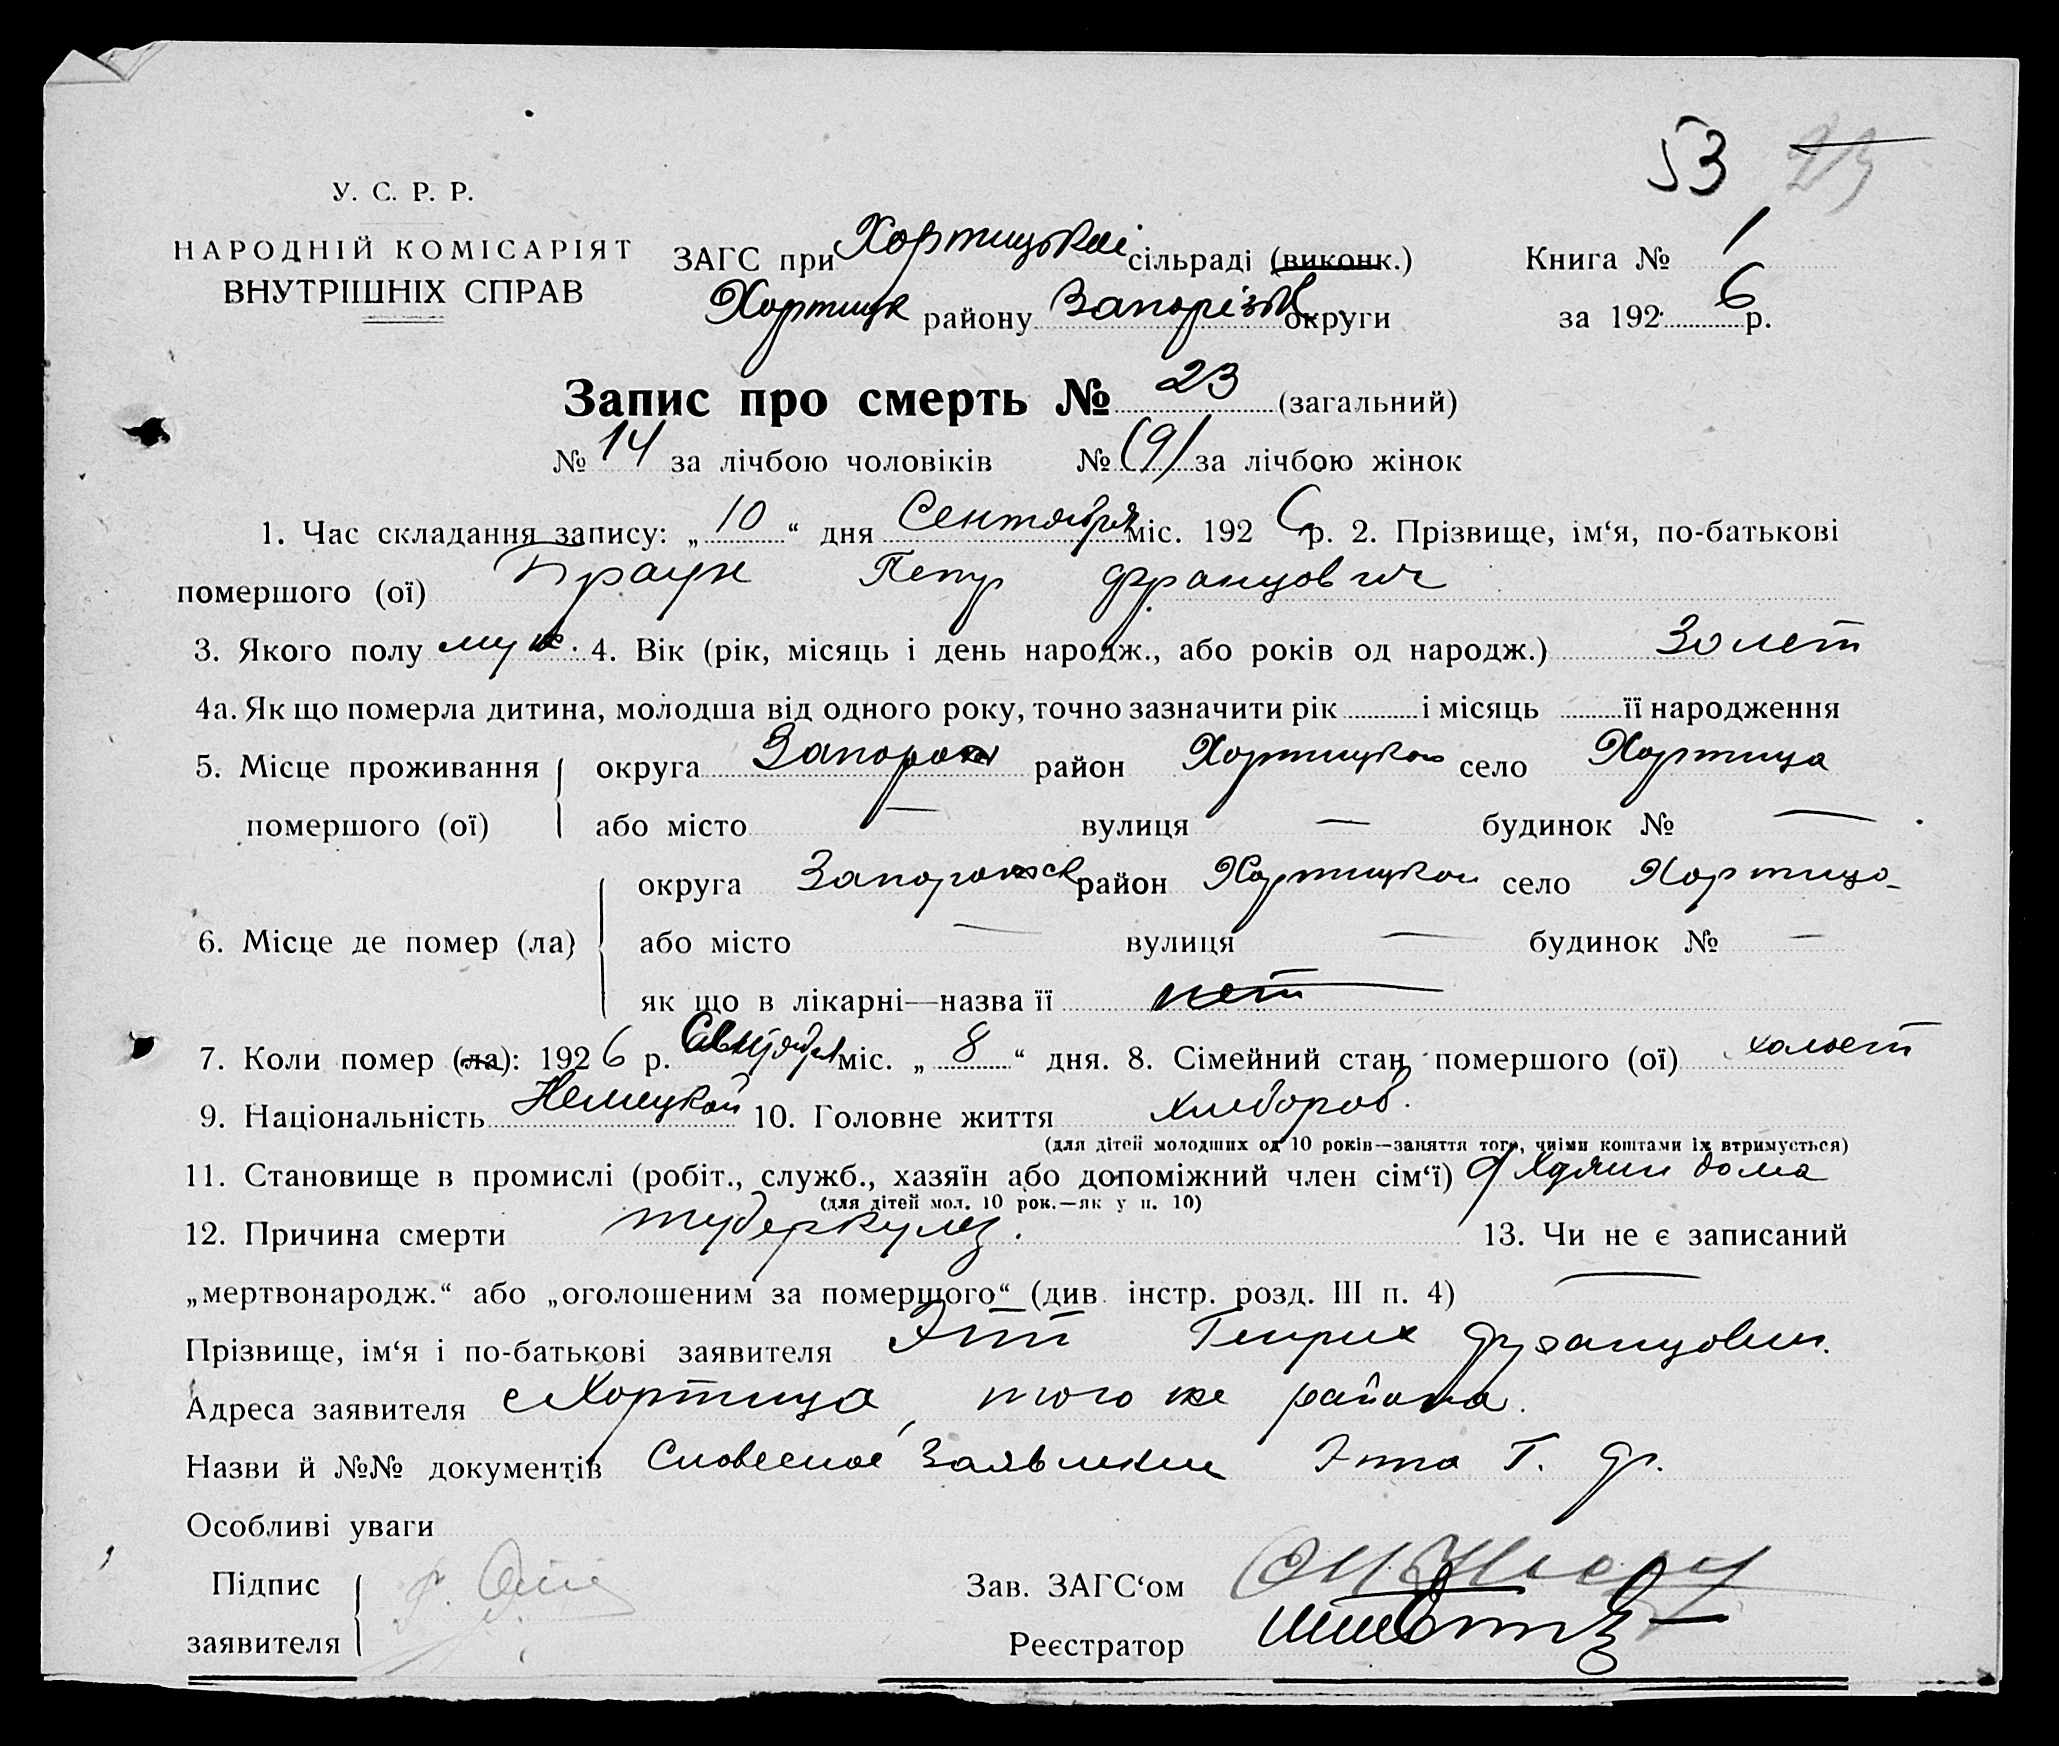 53 23
У. С. Р. Р.
НАРОДНІЙ КОМІСАРІЯТ
ВНУТРІШНІХ СПРАВ
ЗАГС при Хортицькой сільраді (виконк.)
Хортицк району Запорізьк округи
Книга № 1
за 192 6 р.
Запис про смерть № 23 (загальний)
№ 14 за лічбою чоловіків № (9) за лічбою жінок
1. Час складання запису: „ 10 “ дня Сентября міс. 192 6 р. 2. Прізвище, ім‘я, по-батькові
помершого (ої) Браун Петр Францович
3. Якого полу муж. 4. Вік (рік, місяць і день народж., або років од народж.) 30 лет
4а. Як що померла дитина, молодша від одного року, точно зазначити рік і місяць її народження
5. Місце проживання округа Запорож район Хортицкой село Хортица
помершого (ої) або місто — вулиця — будинок № —
округа Запорожск район Хортицкой село Хортица
6. Місце де помер (ла) або місто — вулиця — будинок № —
як що в лікарні—назва її нет
7. Коли помер (ла): 192 6 р. Сентября міс. „ 8 “ дня. 8. Сімейний стан помершого (ої) холост
9. Національність Немецкой 10. Головне життя хлебороб.
(для дітей молодших од 10 років—заняття того, чиїми коштами їх втримується)
11. Становище в промислі (робіт., служб., хазяїн або допоміжний член сім‘ї) дома
(для дітей мол. 10 рок.—як у п. 10)
12. Причина смерти туберкулез. 13. Чи не є записаний
„мертвонародж.“ або „оголошеним за померщого“ (див. інстр. розд. III п. 4) —
Прізвище, ім‘я і по-батькові заявителя Этт Генрих Францович.
Адреса заявителя с Хортица, того же района.
Назви й №№ документів Словесное заявление Этта Г. Фр.
Особливі уваги
Підпис
заявителя
Зав. ЗАГС‘ом
Реєстратор